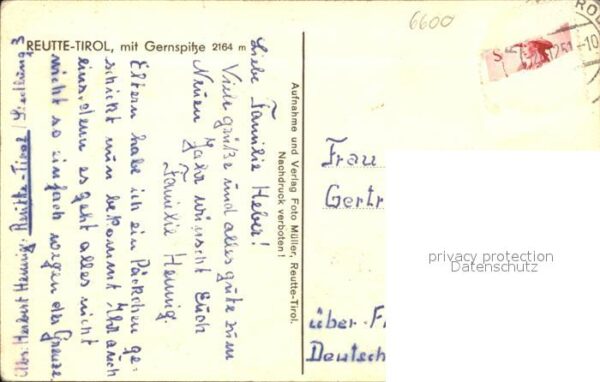 REUTTE-TIROL, mit Gernspitze 2164 m
6600
Liebe Familie Heber!
Viele grüße und alles gute zum
Neuen Jahr wünscht Euch
Familie Hennig.
Eltern habe ich ein Päckchen ge-
schickt nun bekommt Ihr auch
eins, denn es geht alles nicht
nicht so einfach wegen der Grenze.
Abs: Herbert Hennig, Reutte-Tirol / Siedlung 3
Aufnahme und Verlag Foto Müller, Reutte-Tirol.
Nachdruck verboten!
Frau
Gertr
über F
Deutsch
privacy protection
Datenschutz